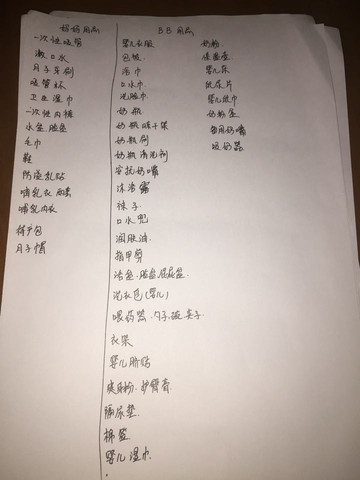 妈妈用品
一次性吸管
漱口水
月子牙刷
吸管杯
卫生湿巾
一次性内裤
水盆 脸盆
毛巾
鞋
防溢乳贴
哺乳衣 两套
哺乳内衣
待产包
月子帽
BB用品
婴儿衣服
包被
浴巾
口水巾
洗脸巾
奶瓶
奶瓶晾干架
奶瓶刷
奶瓶清洗剂
安抚奶嘴
沐浴露
袜子
口水兜
润肤油
指甲剪
浴盆、脸盆、屁屁盆
洗衣皂(婴儿)
喂药器、勺子、碗、夹子
衣架
婴儿肚贴
爽身粉、护臀膏
隔尿垫
棉签
婴儿湿巾
奶粉
保温壶
婴儿床
纸尿片
婴儿纸巾
奶粉盒
备用奶嘴
吸奶器